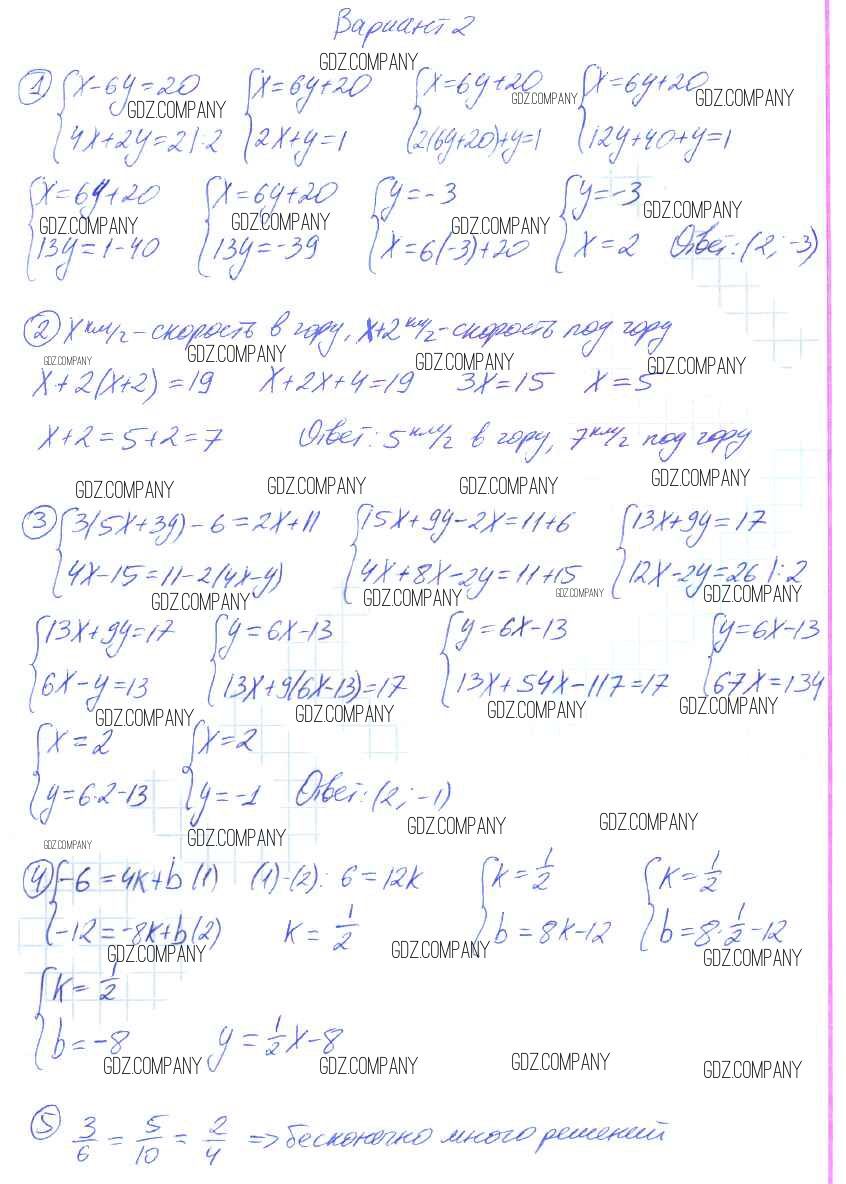 Вариант 2
GDZ.COMPANY
1 { x-6y=20 { x=6y+20 { x=6y+20 { x=6y+20
GDZ.COMPANY GDZ.COMPANY GDZ.COMPANY
4x+2y=2 |:2 2x+y=1 2(6y+20)+y=1 12y+40+y=1
{ x=6y+20 { x=6y+20 { y=-3 { y=-3
GDZ.COMPANY GDZ.COMPANY GDZ.COMPANY GDZ.COMPANY
13y=1-40 13y=-39 x=6(-3)+20 x=2 Ответ: (2; -3)
2 x км/г - скорость в гору, x+2 км/г - скорость под гору
GDZ.COMPANY GDZ.COMPANY GDZ.COMPANY GDZ.COMPANY
x+2(x+2)=19 x+2x+4=19 3x=15 x=5
x+2=5+2=7 Ответ: 5 км/г в гору, 7 км/г под гору
GDZ.COMPANY GDZ.COMPANY GDZ.COMPANY GDZ.COMPANY
3 { 3(5x+3y)-6=2x+11 { 15x+9y-2x=11+6 { 13x+9y=17
4x-15=11-2(4x-y) 4x+8x-2y=11+15 12x-2y=26 |:2
GDZ.COMPANY GDZ.COMPANY GDZ.COMPANY GDZ.COMPANY
{ 13x+9y=17 { y=6x-13 { y=6x-13 { y=6x-13
6x-y=13 13x+9(6x-13)=17 13x+54x-117=17 67x=134
GDZ.COMPANY GDZ.COMPANY GDZ.COMPANY GDZ.COMPANY
{ x=2 { x=2
y=6·2-13 y=-1 Ответ: (2; -1)
GDZ.COMPANY GDZ.COMPANY GDZ.COMPANY GDZ.COMPANY
4 { -6=4k+b (1) (1)-(2): 6=12k { k=1/2 { k=1/2
-12=-8k+b (2) k=1/2 b=8k-12 b=8·1/2-12
GDZ.COMPANY GDZ.COMPANY GDZ.COMPANY
{ k=1/2
b=-8 y=1/2x-8
GDZ.COMPANY GDZ.COMPANY GDZ.COMPANY GDZ.COMPANY
5 3/6 = 5/10 = 2/4 => бесконечно много решений